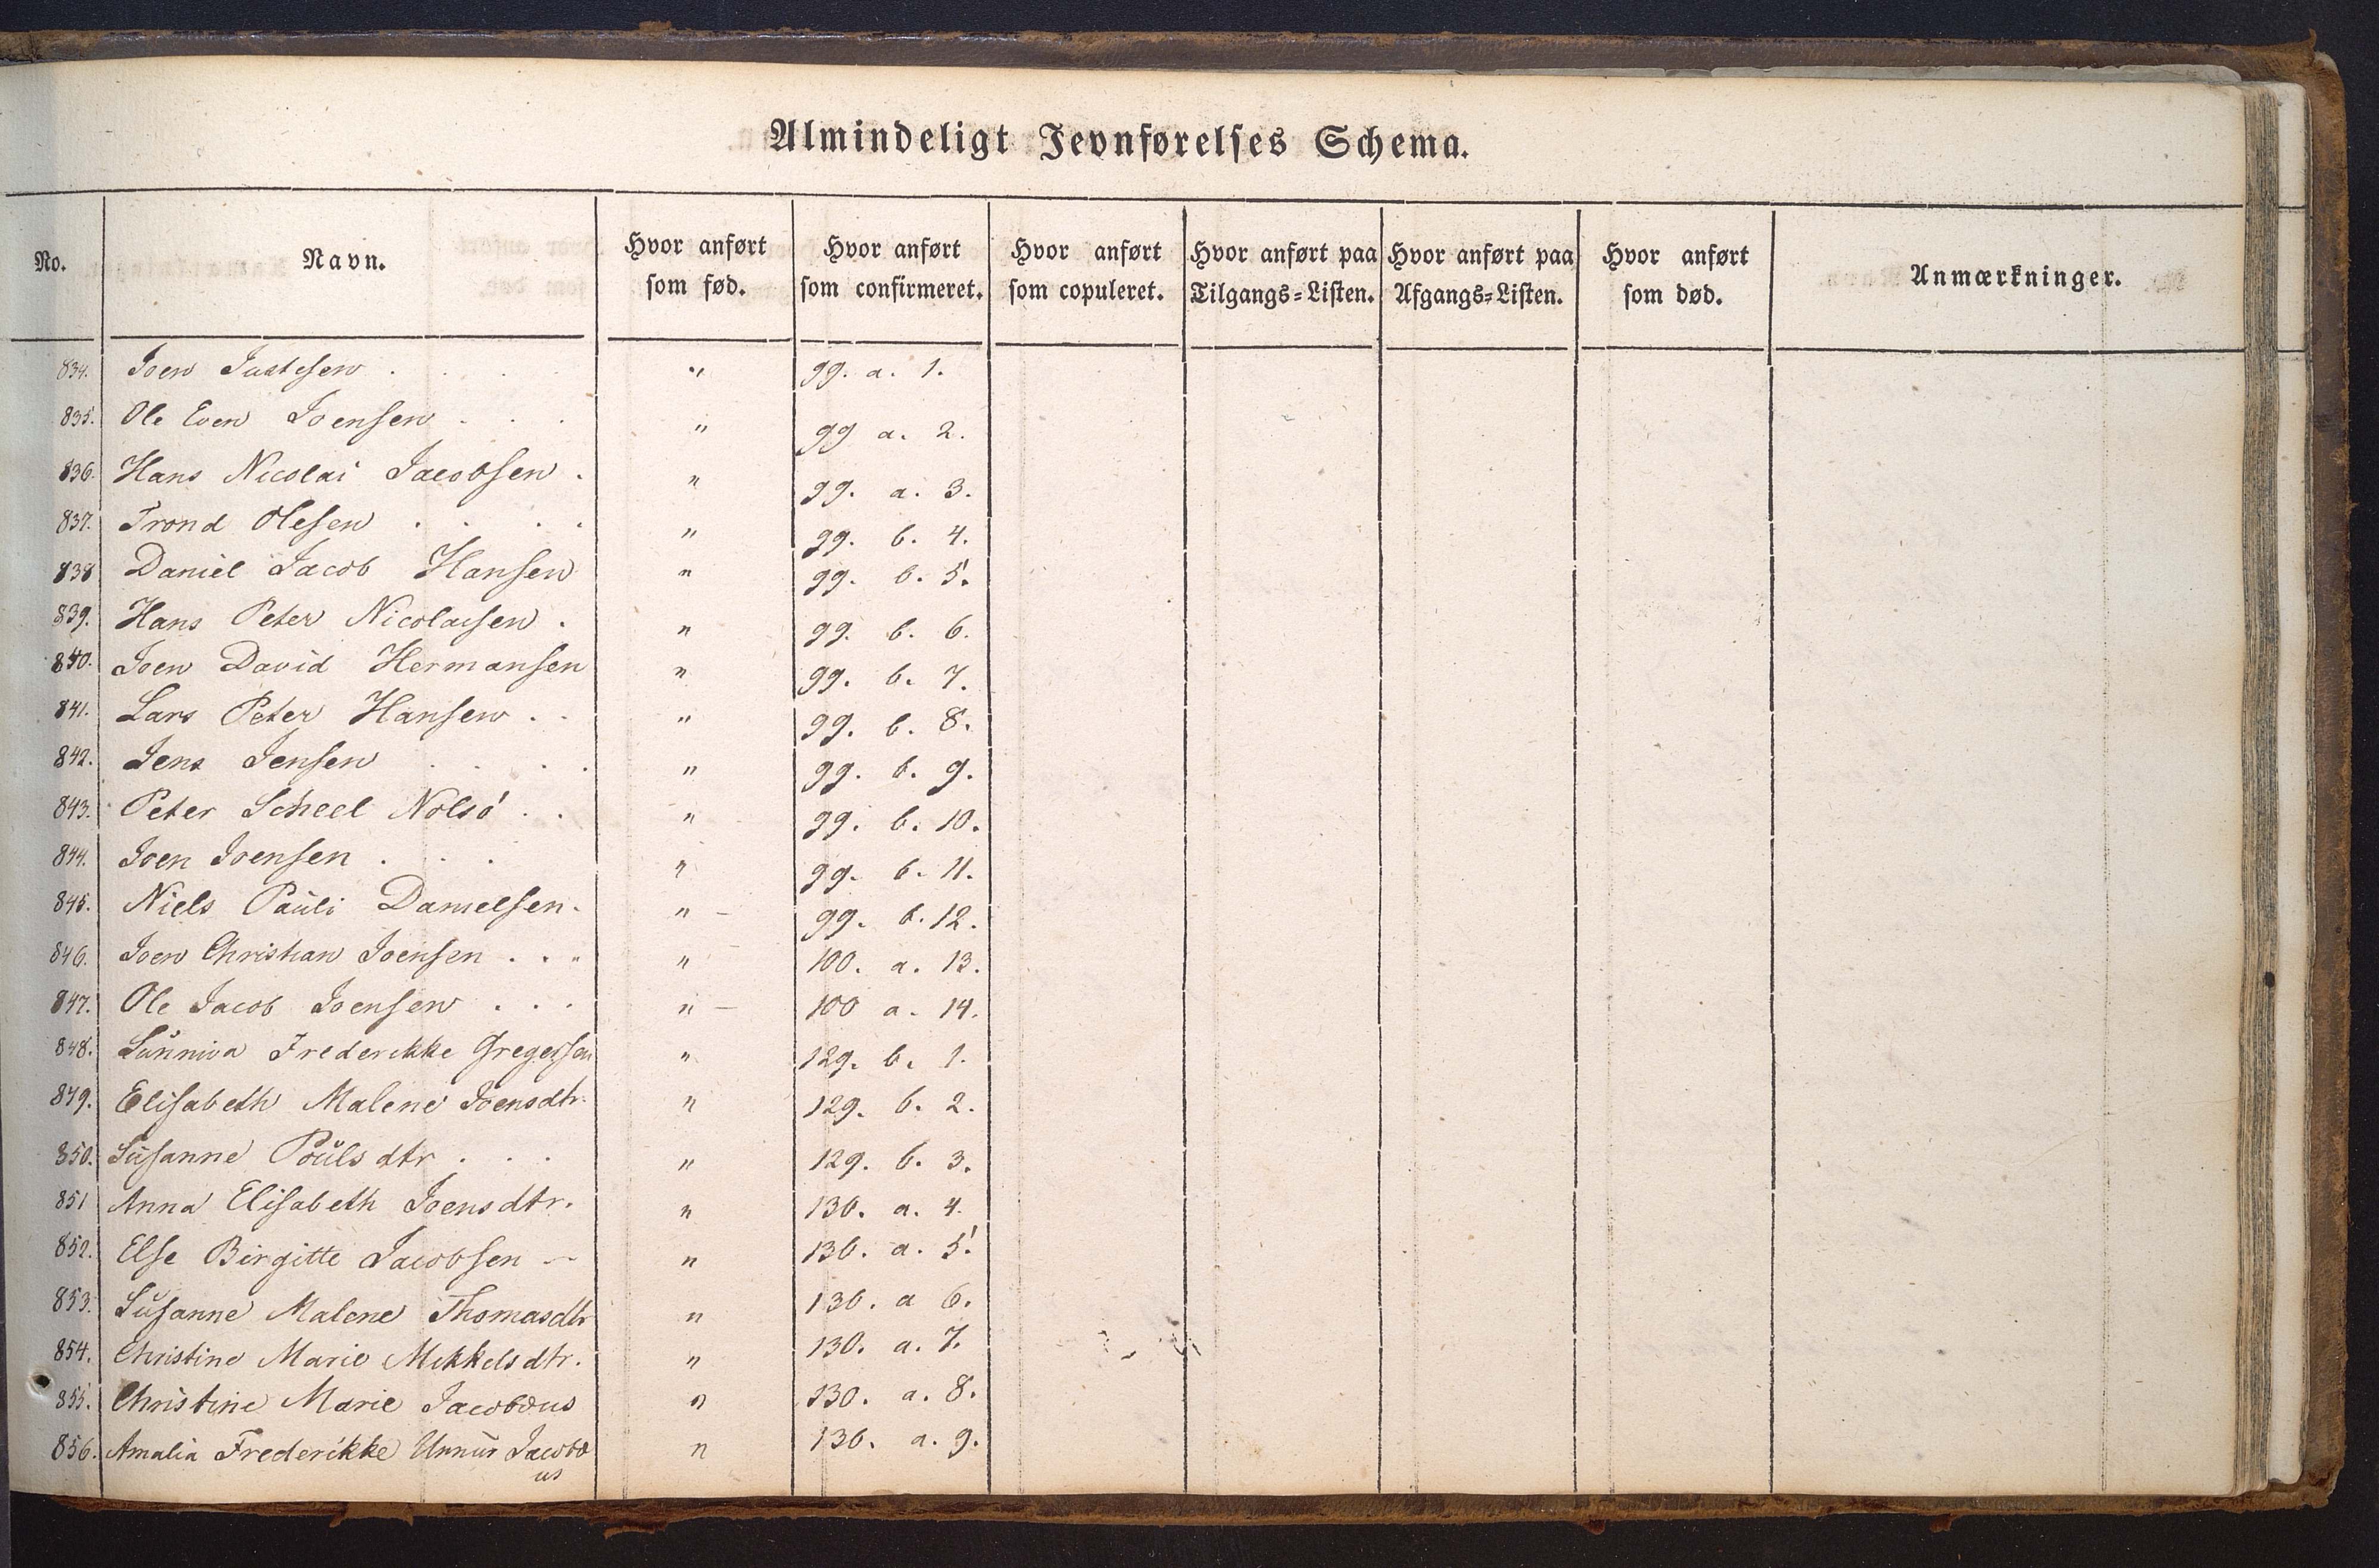 Almindeligt Jevnførelses Schema.
No. Navn. Hvor anført som fød. Hvor anført som confirmeret. Hvor anført som copuleret. Hvor anført paa Tilgangs-Listen. Hvor anført paa Afgangs-Listen. Hvor anført som død. Anmærkninger.
834. Joen Justesen . . . " 99. a. 1.
835. Ole Even Joensen . . . " 99 a. 2.
836. Hans Nicolai Jacobsen . " 99. a. 3.
837. Trond Olesen . . . . " 99. b. 4.
838 Daniel Jacob Hansen " 99. b. 5.
839. Hans Peter Nicolaisen . " 99. b. 6.
840. Joen David Hermansen " 99. b. 7.
841. Lars Peter Hansen . . " 99. b. 8.
842. Jens Jensen . . . . " 99. b. 9.
843. Peter Scheel Nolsö . . " 99. b. 10.
844. Joen Joensen . . . " 99. b. 11.
845. Niels Pauli Danielsen. " – 99. b. 12.
846. Joen Christian Joensen . . " " 100. a. 13.
847. Ole Jacob Joensen . . . " – 100 a. 14.
848. Sunniva Frederikke Gregersen " 129. b. 1.
849. Elisabeth Malene Joensdtr. " 129. b. 2.
850. Susanne Poulsdtr . . . " 129. b. 3.
851 Anna Elisabeth Joensdtr. " 130. a. 4.
852. Else Birgitte Jacobsen – " 130. a. 5.
853. Susanne Malene Thomasdtr " 130. a 6.
854. Christine Marie Mikkelsdtr. " 130. a. 7.
855. Christine Marie Jacobæus " 130. a. 8.
856. Amalia Frederikke Unnur Jacobæ " 130. a. 9.
us